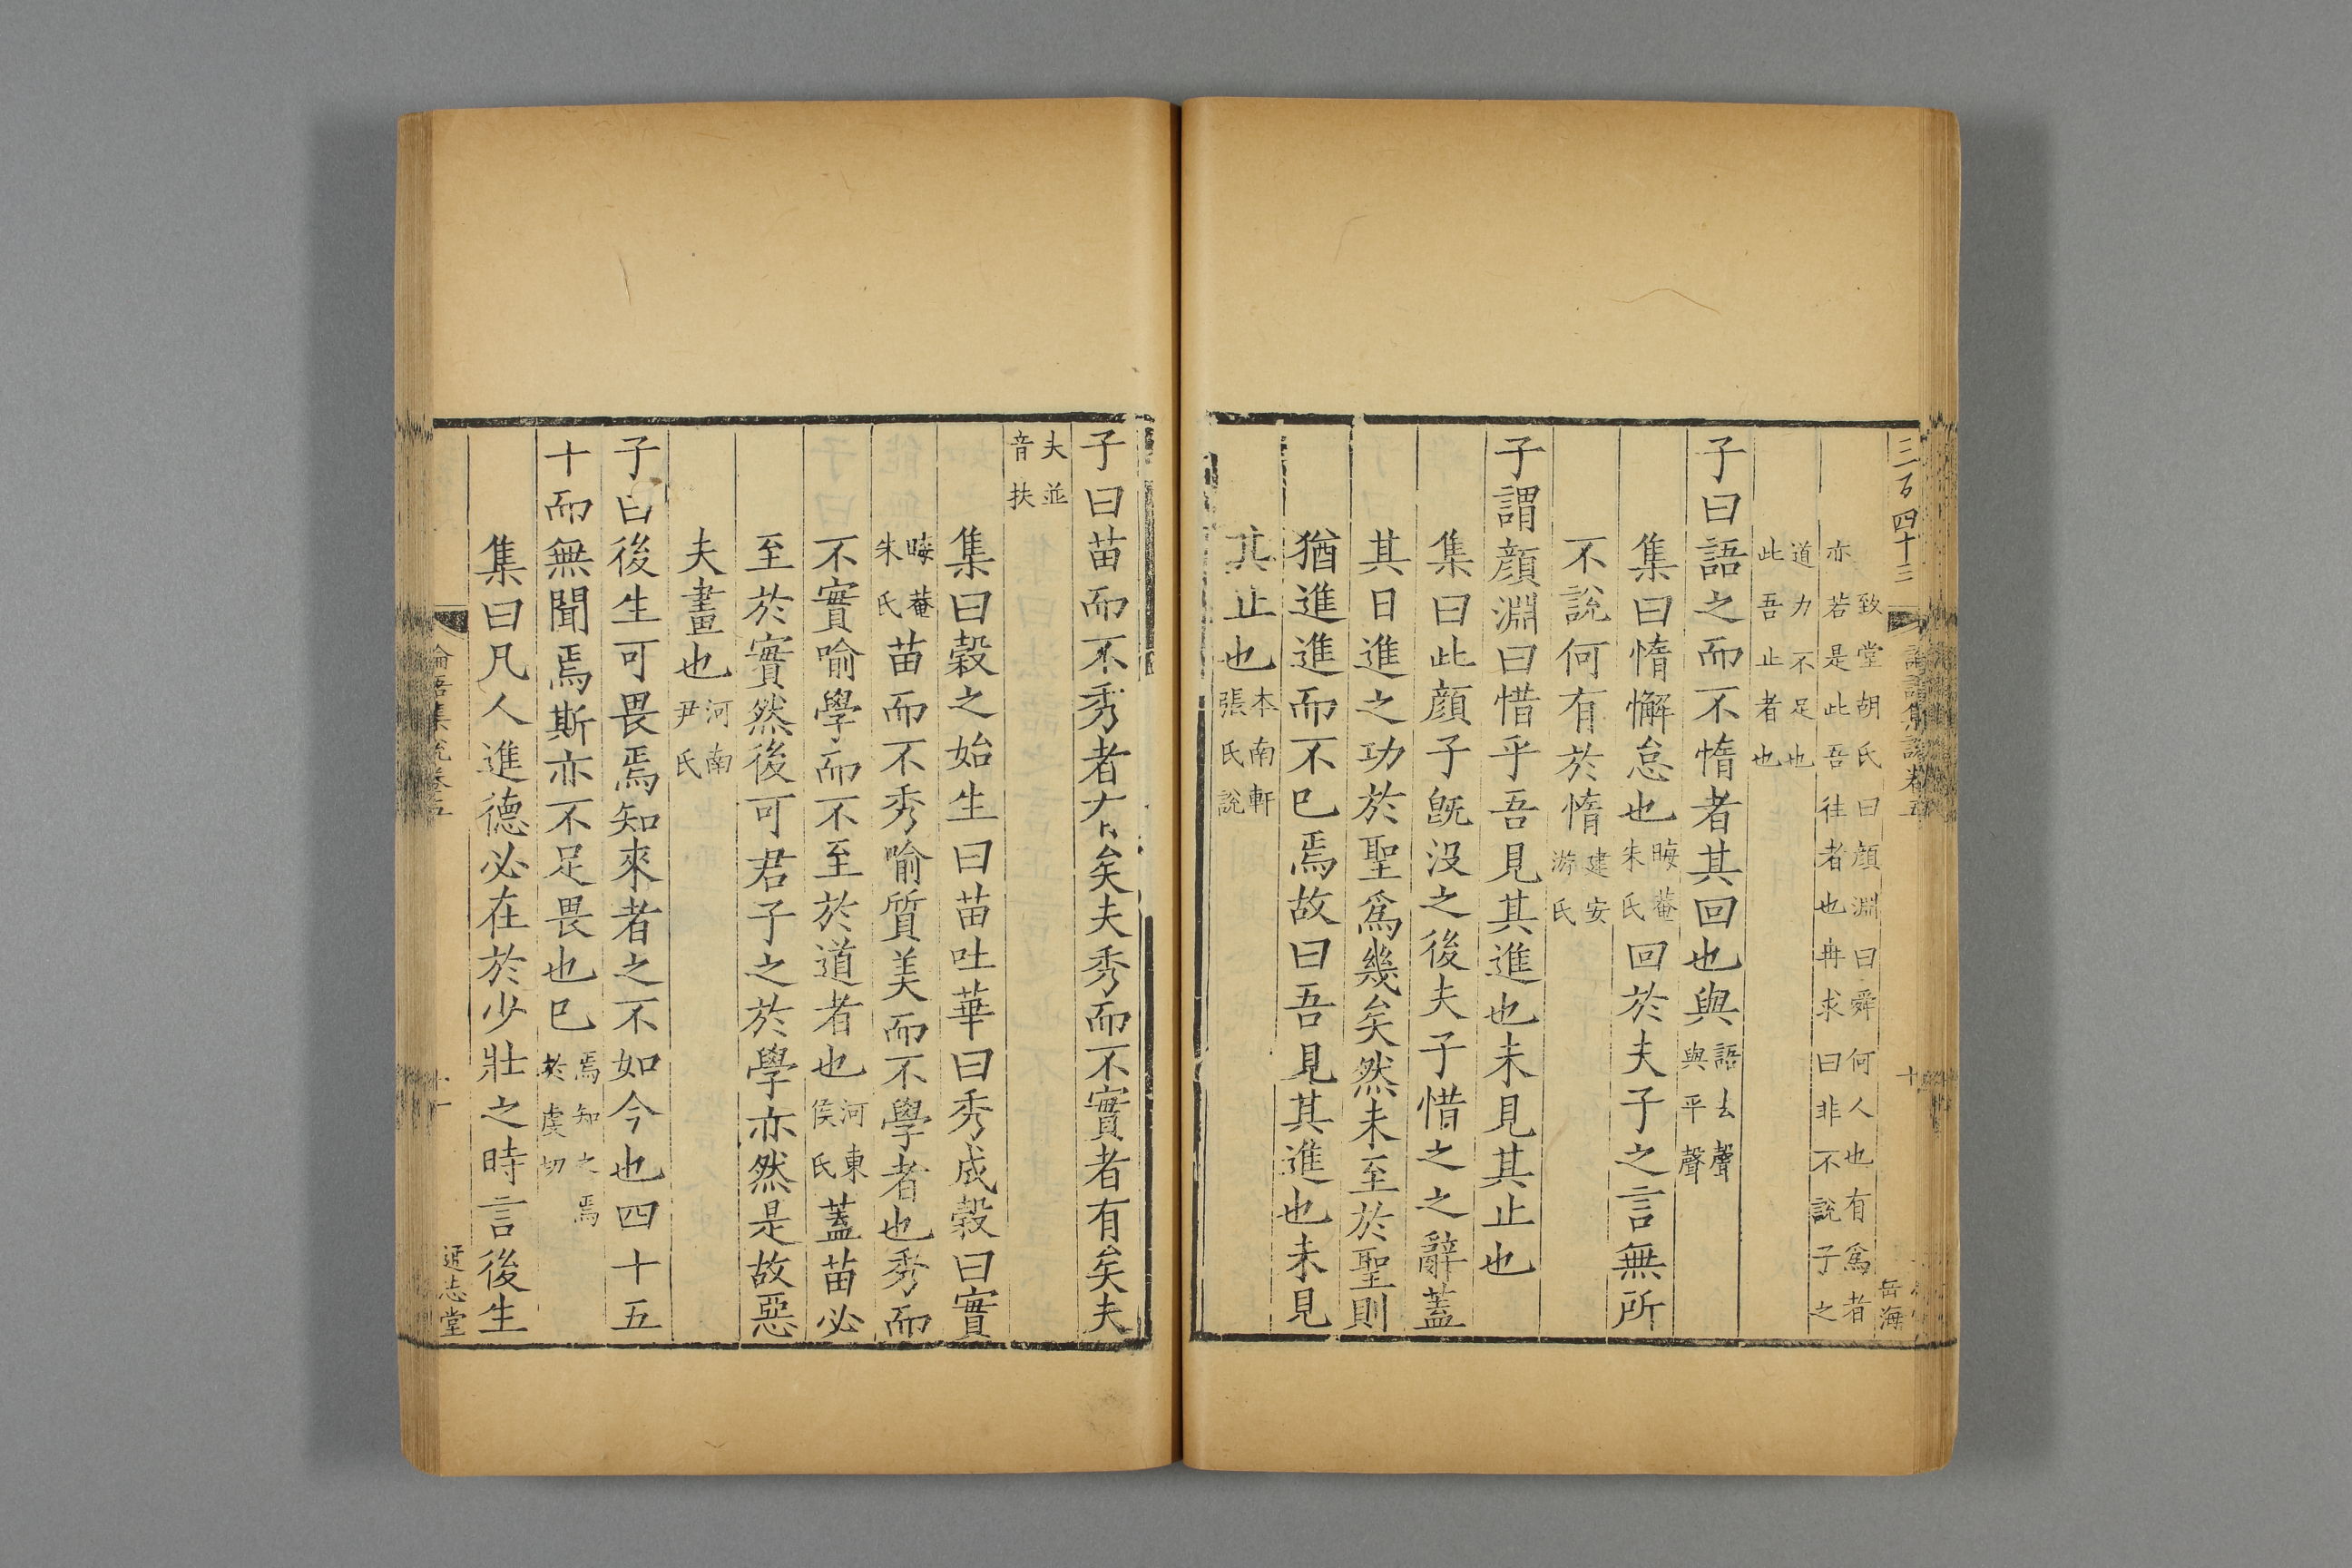 三百四十三
論語集說卷五
十
岳海
致堂胡氏曰顔淵曰舜何人也有爲者
亦若是此吾往者也冉求曰非不說子之
道力不足也
此吾止者也
子曰語之而不惰者其回也與語去聲與平聲
集曰惰懈怠也晦菴朱氏回於夫子之言無所
不說何有於惰建安游氏
子謂顔淵曰惜乎吾見其進也未見其止也
集曰此顔子旣没之後夫子惜之之辭蓋
其日進之功於聖爲幾矣然未至於聖則
猶進進而不已焉故曰吾見其進也未見
其止也本南軒張氏說
子曰苗而不秀者有矣夫秀而不實者有矣夫
夫並音扶
集曰穀之始生曰苗吐華曰秀成穀曰實
晦菴朱氏苗而不秀喻質美而不學者也秀而
不實喻學而不至於道者也河東侯氏蓋苗必
至於實然後可君子之於學亦然是故惡
夫畫也河南尹氏
子曰後生可畏焉知來者之不如今也四十五
十而無聞焉斯亦不足畏也已焉知之焉於虔切
集曰凡人進德必在於少壯之時言後生
論語集說卷五
十一
通志堂